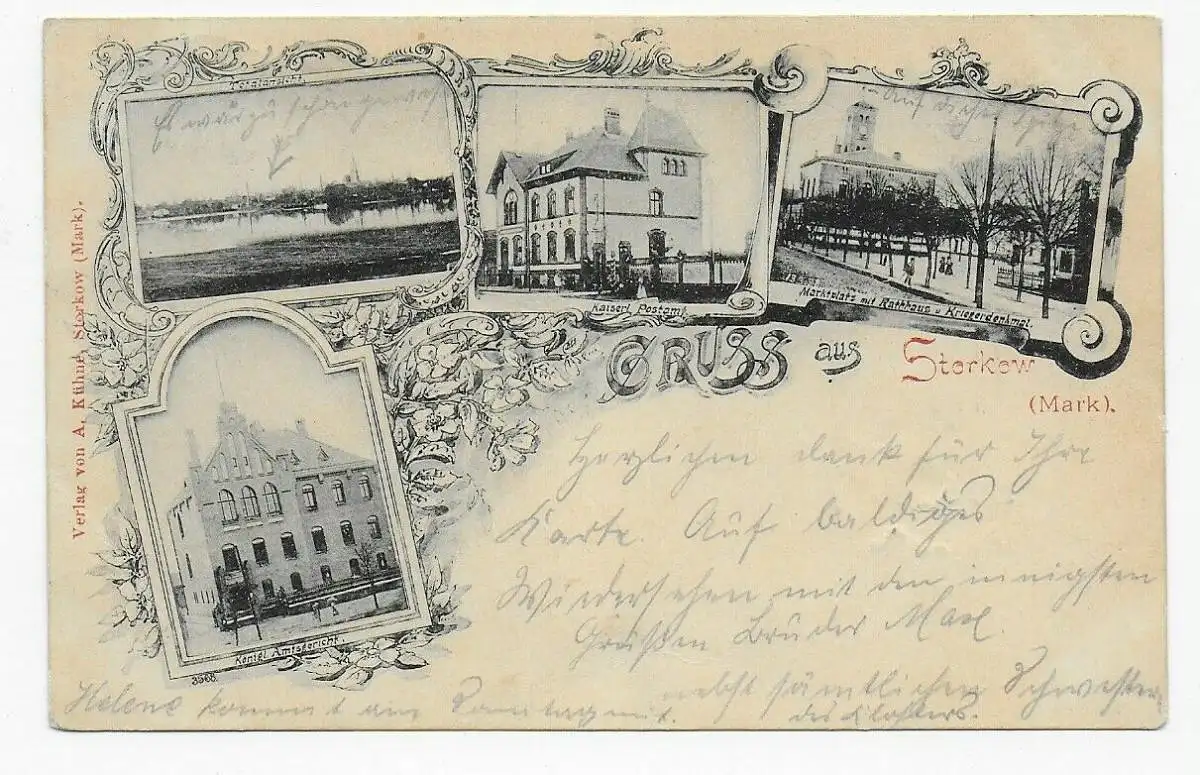 Totalansicht.
Es wär zu schön gewesen
Kaiserl. Postamt.
Auf dieser
Marktplatz mit Rathhaus u. Kriegerdenkmal.
Verlag von A. Kühne, Storkow (Mark).
GRUSS aus Storkow
(Mark).
Königl. Amtsgericht.
3568.
Herzlichen dank für Ihre
Karte. Auf baldiges
Wiedersehen mit den innigsten
Grüßen Bruder Max.
nebst sämtlichen Schwestern
des Klosters.
Helene kommt am Sonntag mit.